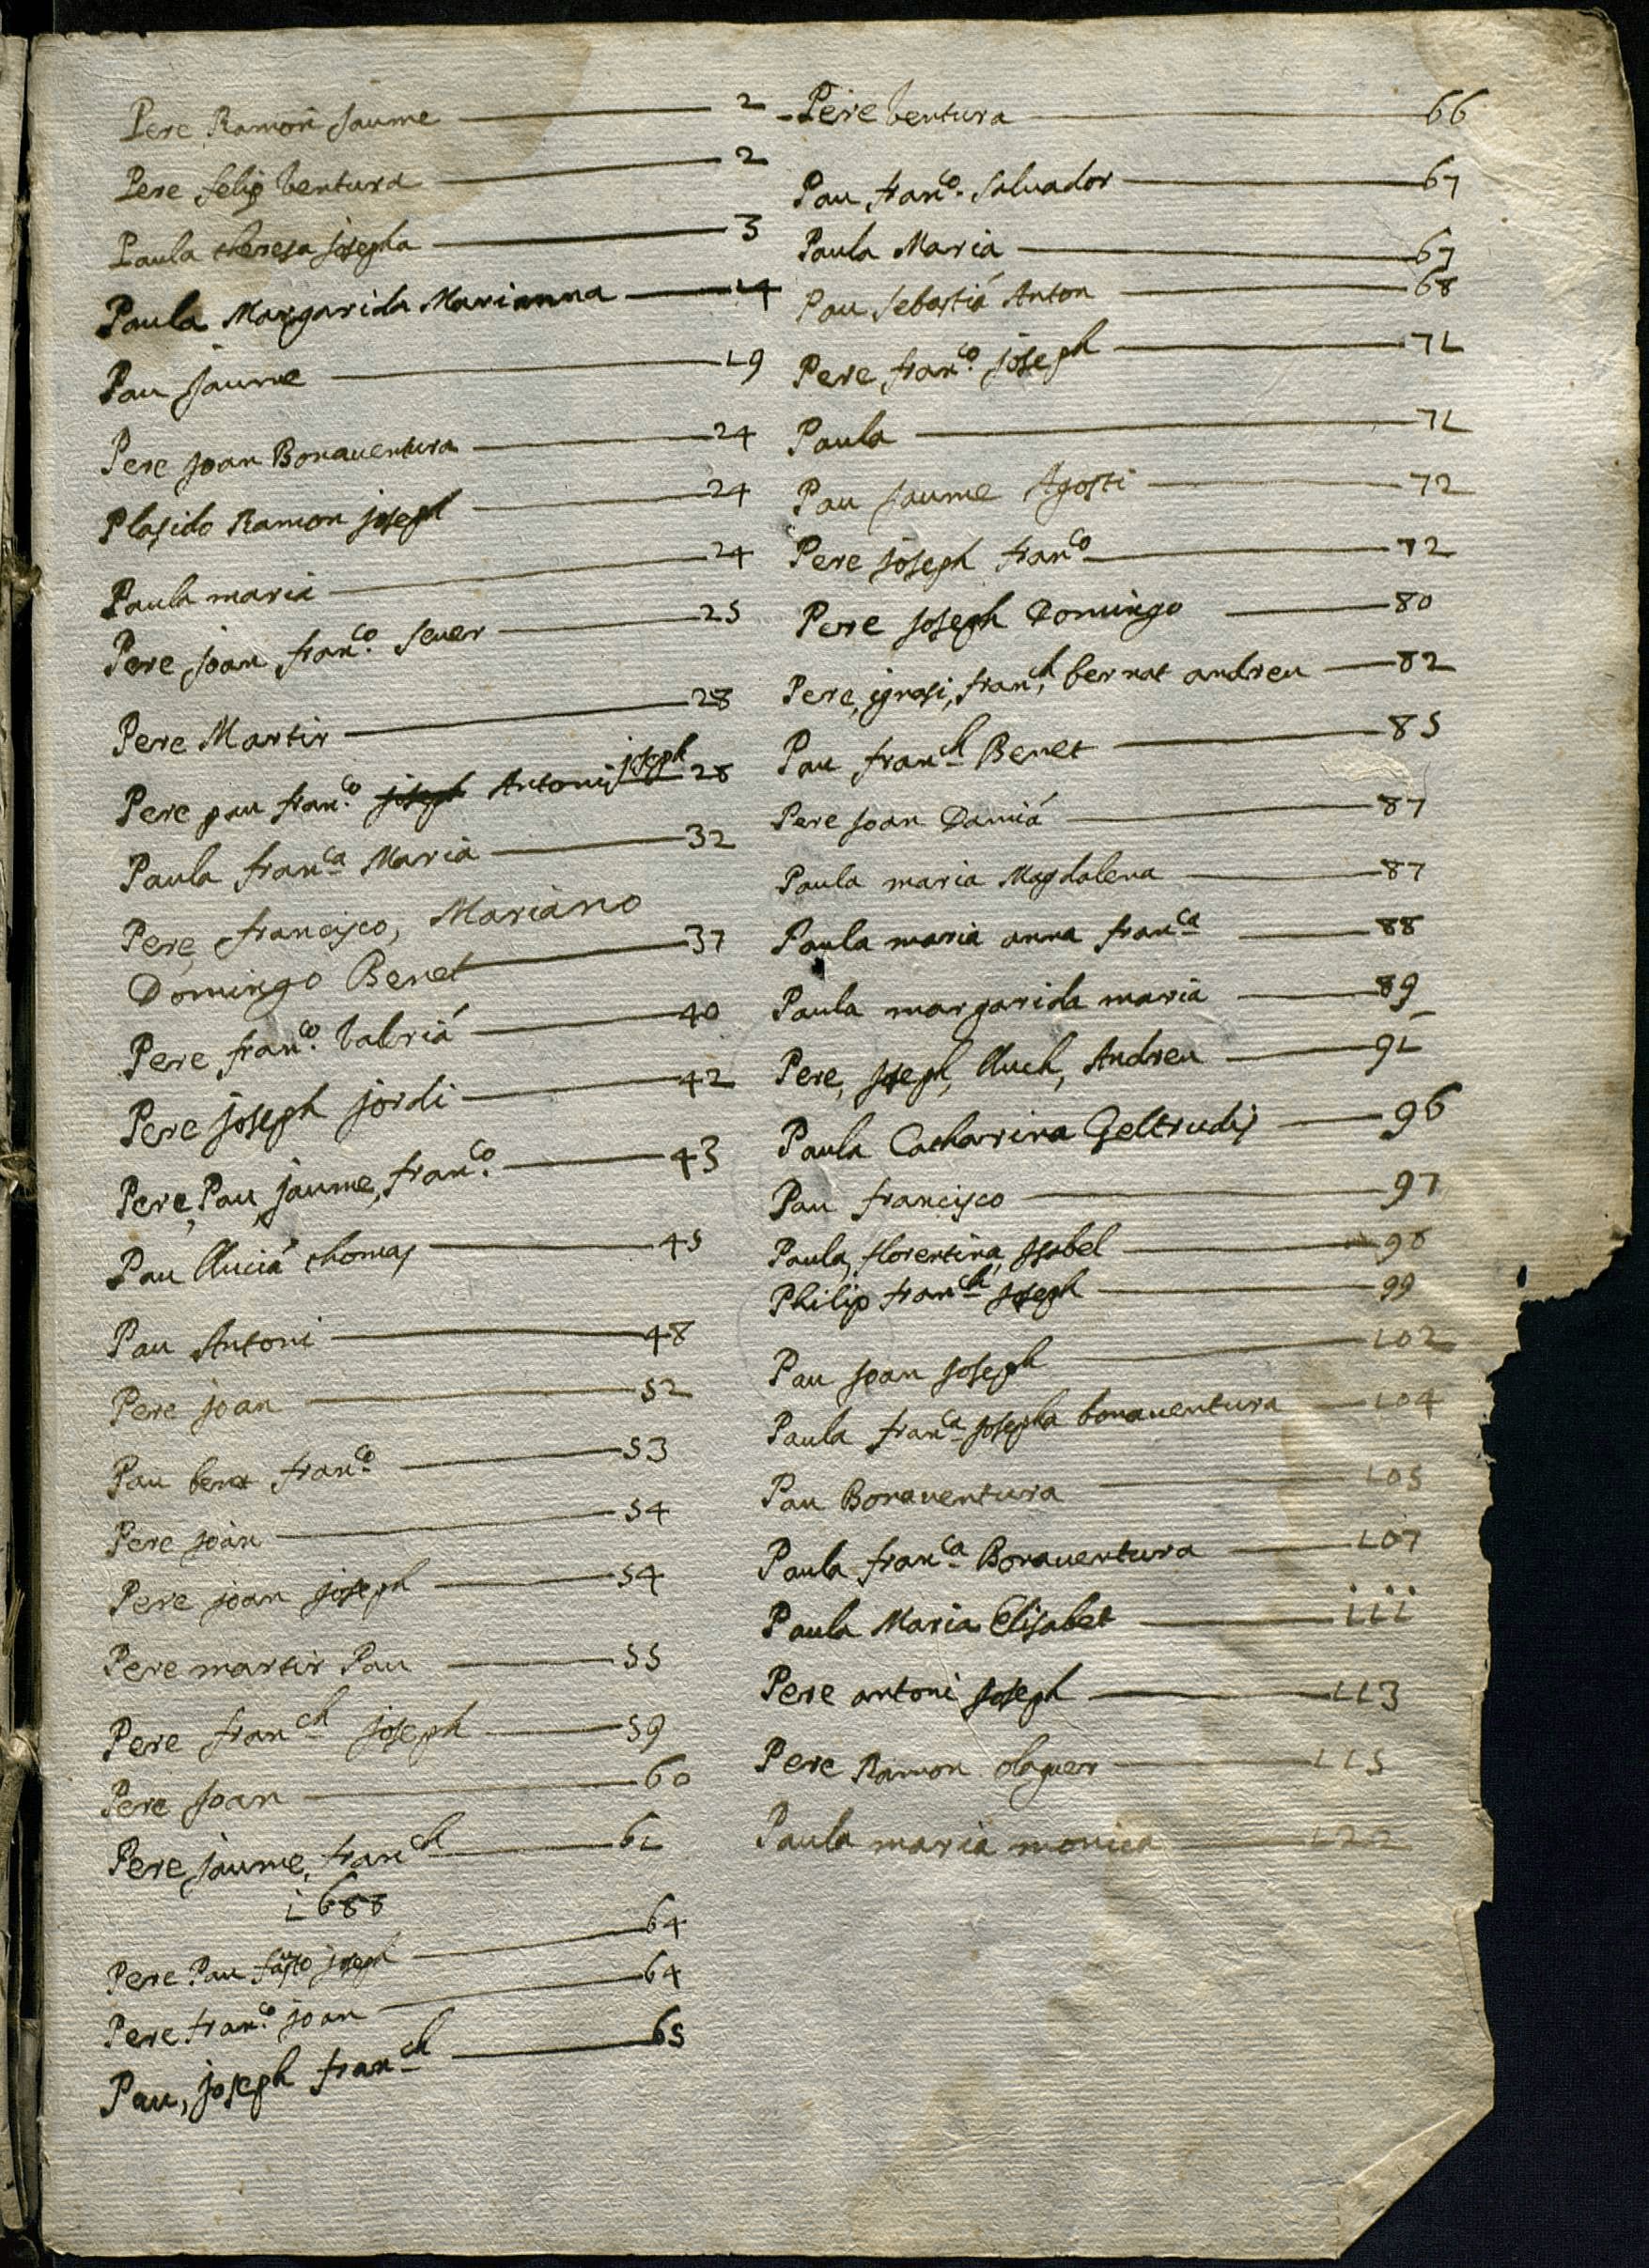 Pere Ramon Jaume 2
Pere felip Ventura 2
Paula theresa josepha 3
Paula Margarida Marianna 14
Pau Jaume 19
Pere Joan Bonaventura 24
Plasido Ramon joseph 24
Paula maria 24
Pere joan franco. sever 25
Pere Martir 28
Pere pau franco. joseph Antonij joseph 28
Paula franca Maria 32
Pere, francisco, Mariano
Domingo Benet 37
Pere franco. Valeriá 40
Pere joseph jordi 42
Pere, Pau, jaume, franco. 43
Pau lluciá thomas 45
Pau Antoni 48
Pere joan 52
Pau benet franco 53
Pere joan 54
Pere joan joseph 54
Pere martir Pau 55
Pere franch joseph 59
Pere Joan 60
Pere, jaume, franch 61
1688
Pere Pau fausto joseph 64
Pere franco. joan 64
Pau, joseph franch 65
Pere Ventura 66
Pau franco. Salvador 67
Paula Maria 67
Pau Sebastiá Anton 68
Pere franco. joseph 71
Paula 71
Pau Jaume Agosti 72
Pere Joseph franco 72
Pere Joseph Domingo 80
Pere, ignasi, franch, bernat andreu 82
Pau franch Benet 85
Pere Joan Damiá 87
Paula maria Magdalena 87
Paula maria anna franca 88
Paula margarida maria 89
Pere, Joseph, lluch, Andreu 91
Paula Catharina Geltrudis 96
Pau francisco 97
Paula, florentina, Isabel 98
Philip franch Joseph 99
Pau Joan Joseph 102
Paula franca Josepha bonaventura 104
Pau Bonaventura 105
Paula franca Bonaventura 107
Paula Maria Elisabet 111
Pere antoni Joseph 113
Pere Ramon olaguer 115
Paula maria monica 122